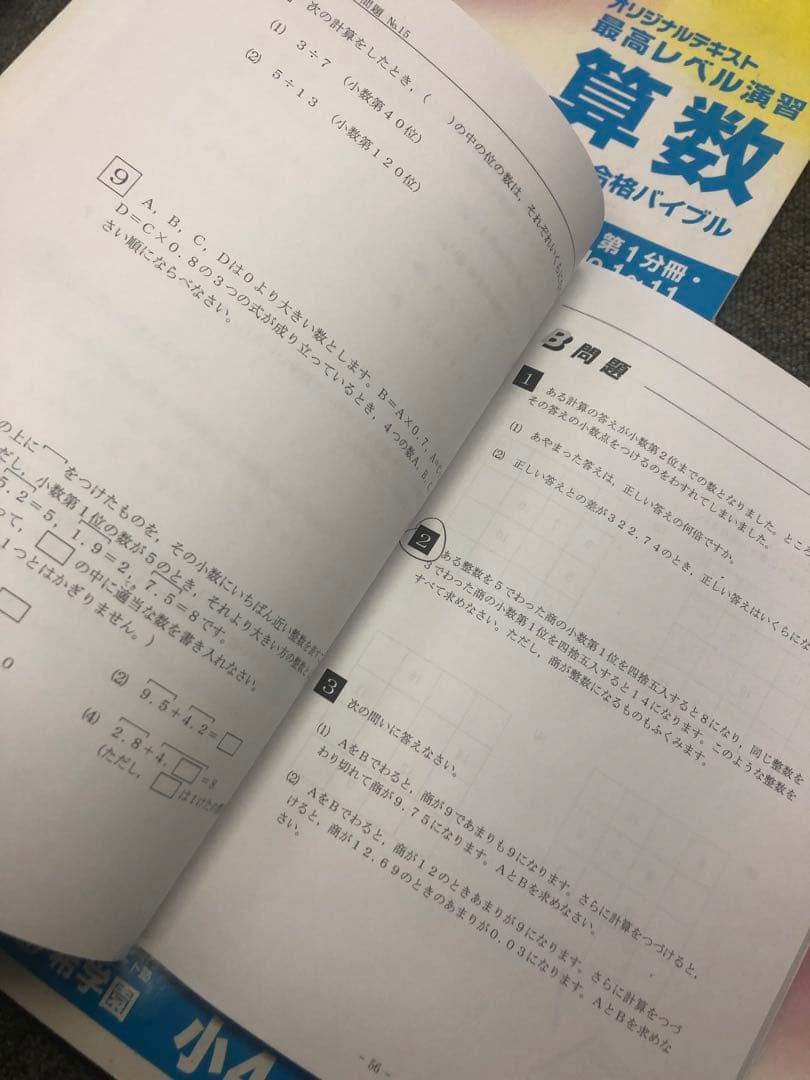 問題 №15
次の計算をしたとき，（　）の中の位の数は，それぞれいくらに
(1) 3÷7 （小数第40位）
(2) 5÷13 （小数第120位）
9 A，B，C，Dは0より大きい数とします。B＝A×0.7，
D＝C×0.8の3つの式が成り立っているとき，4つの数A，B，
さい順にならべなさい。
の上に をつけたものを，その小数にいちばん近い整数を表
だし，小数第1位の数が5のとき，それより大きい方の整数
5.2＝5，1.9＝2，7.5＝8です。
って，□の中に適当な数を書き入れなさい。
1つとはかぎりません。）
0
(2) 9.5＋4.2＝□
(4) 2.8＋4.□＝8
（ただし，□は1けたの
B問題
1 ある計算の答えが小数第2位までの数となりました。ところ
その答えの小数点をつけるのをわすれてしまいました。
(1) あやまった答えは，正しい答えの何倍ですか。
(2) 正しい答えとの差が322.74のとき，正しい答えはいくらにな
2 ある整数を5でわった商の小数第1位を四捨五入すると8になり，同じ整数を
3でわった商の小数第1位を四捨五入すると14になります。このような整数を
すべて求めなさい。ただし，商が整数になるものもふくみます。
3 次の問いに答えなさい。
(1) AをBでわると，商が9であまりも9になります。さらに計算をつづけると，
わり切れて商が9.75になります。AとBを求めなさい。
(2) AをBでわると，商が12のときあまりが9になります。さらに計算をつづ
けると，商が12.69のときのあまりが0.03になります。AとBを求めな
さい。
－56－
オリジナルテキスト
最高レベル演習
算数
合格バイブル
第1分冊・
学園
小4